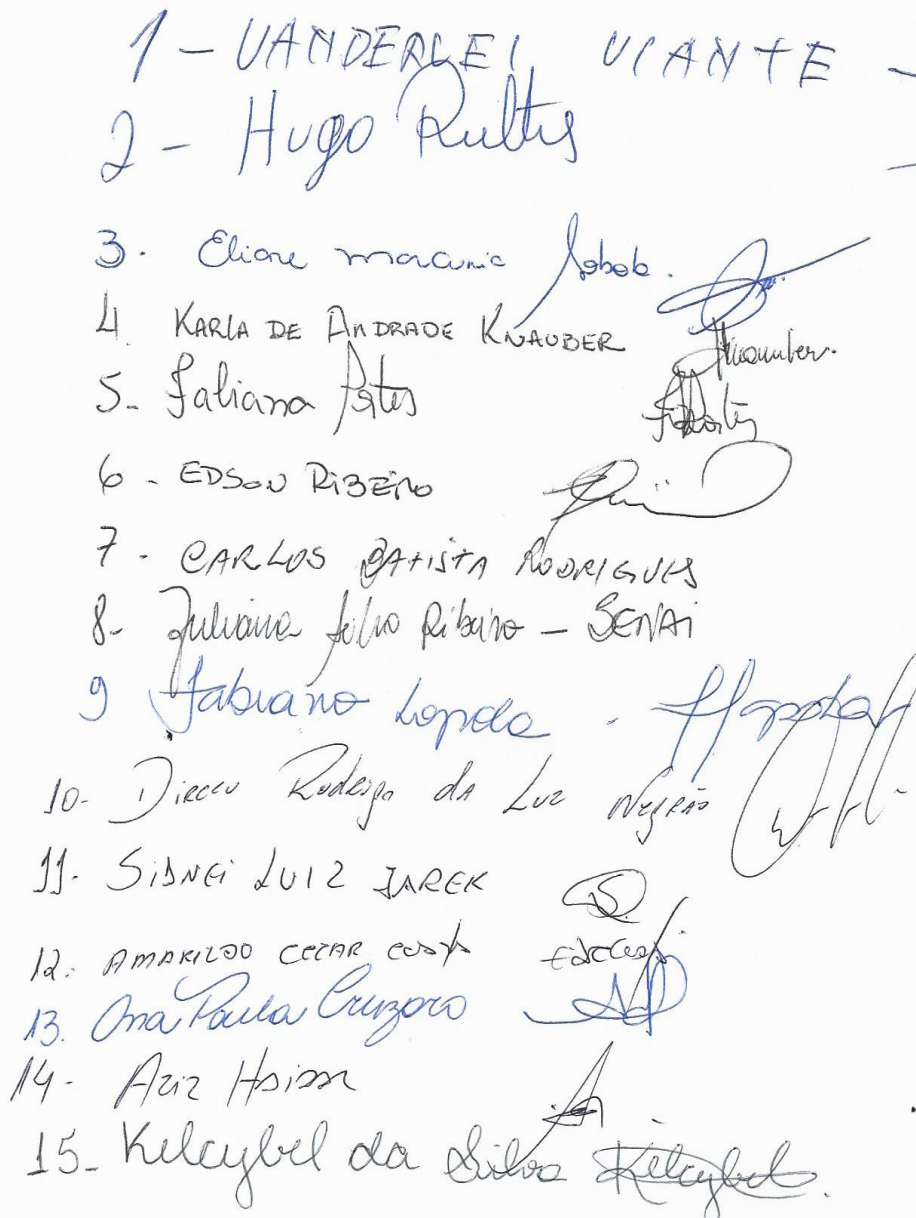 1 - VANDERLEI VIANTE -
2 - Hugo
3. Eliane Sobota.
4 KARLA DE ANDRADE KNAUBER
5- Fabiana
6 - EDSON RIBEIRO
7 - CARLOS BATISTA RODRIGUES
8- Juliana Ribeiro - SENAI
9 Fabiano -
10- Dirceu Rodrigo da Luz Negrão
11- SIDNEI LUIZ JAREK
12. AMARILDO CEZAR COSTA
13. Ana Paula Cruzara
14- Aziz
15- Kelcybel da Silva Kelcybel